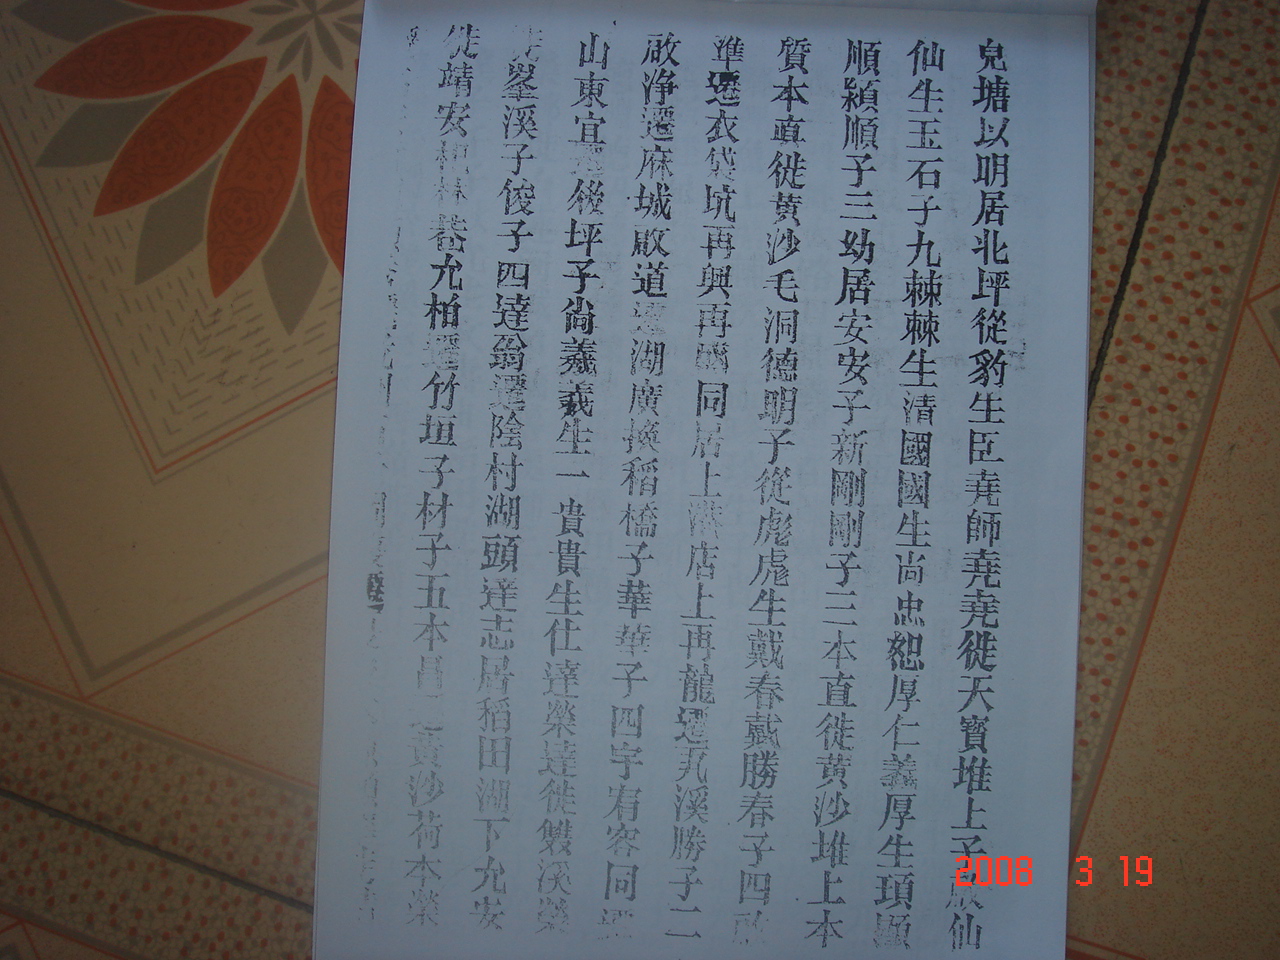 皃塘以明居北坪從豹生臣堯師堯堯徙天寳堆上子啟仙
仙生玉石子九棘棘生清國國生尚忠恕厚仁義厚生頊顯
順穎順子三幼居安安子新剛剛子三本直徙黄沙堆上本
質本直徙黄沙毛洞德明子從彪彪生戴春戴勝春子四啟
準遷衣袋坑再興再國同居上港店上再龍遷瓦溪勝子二
啟浄遷麻城啟道遷湖廣換稻橋子華華子四宇宥容同遷
山東宜遷後坪子尚義義生一貴貴生仕達榮達徙雙溪榮
徙峯溪子俊子四達翁遷陰村湖頭達志居稻田湖下允安
徙靖安桃林巷允栢遷竹垣子材子五本昌黄沙荷本榮
2008 3 19